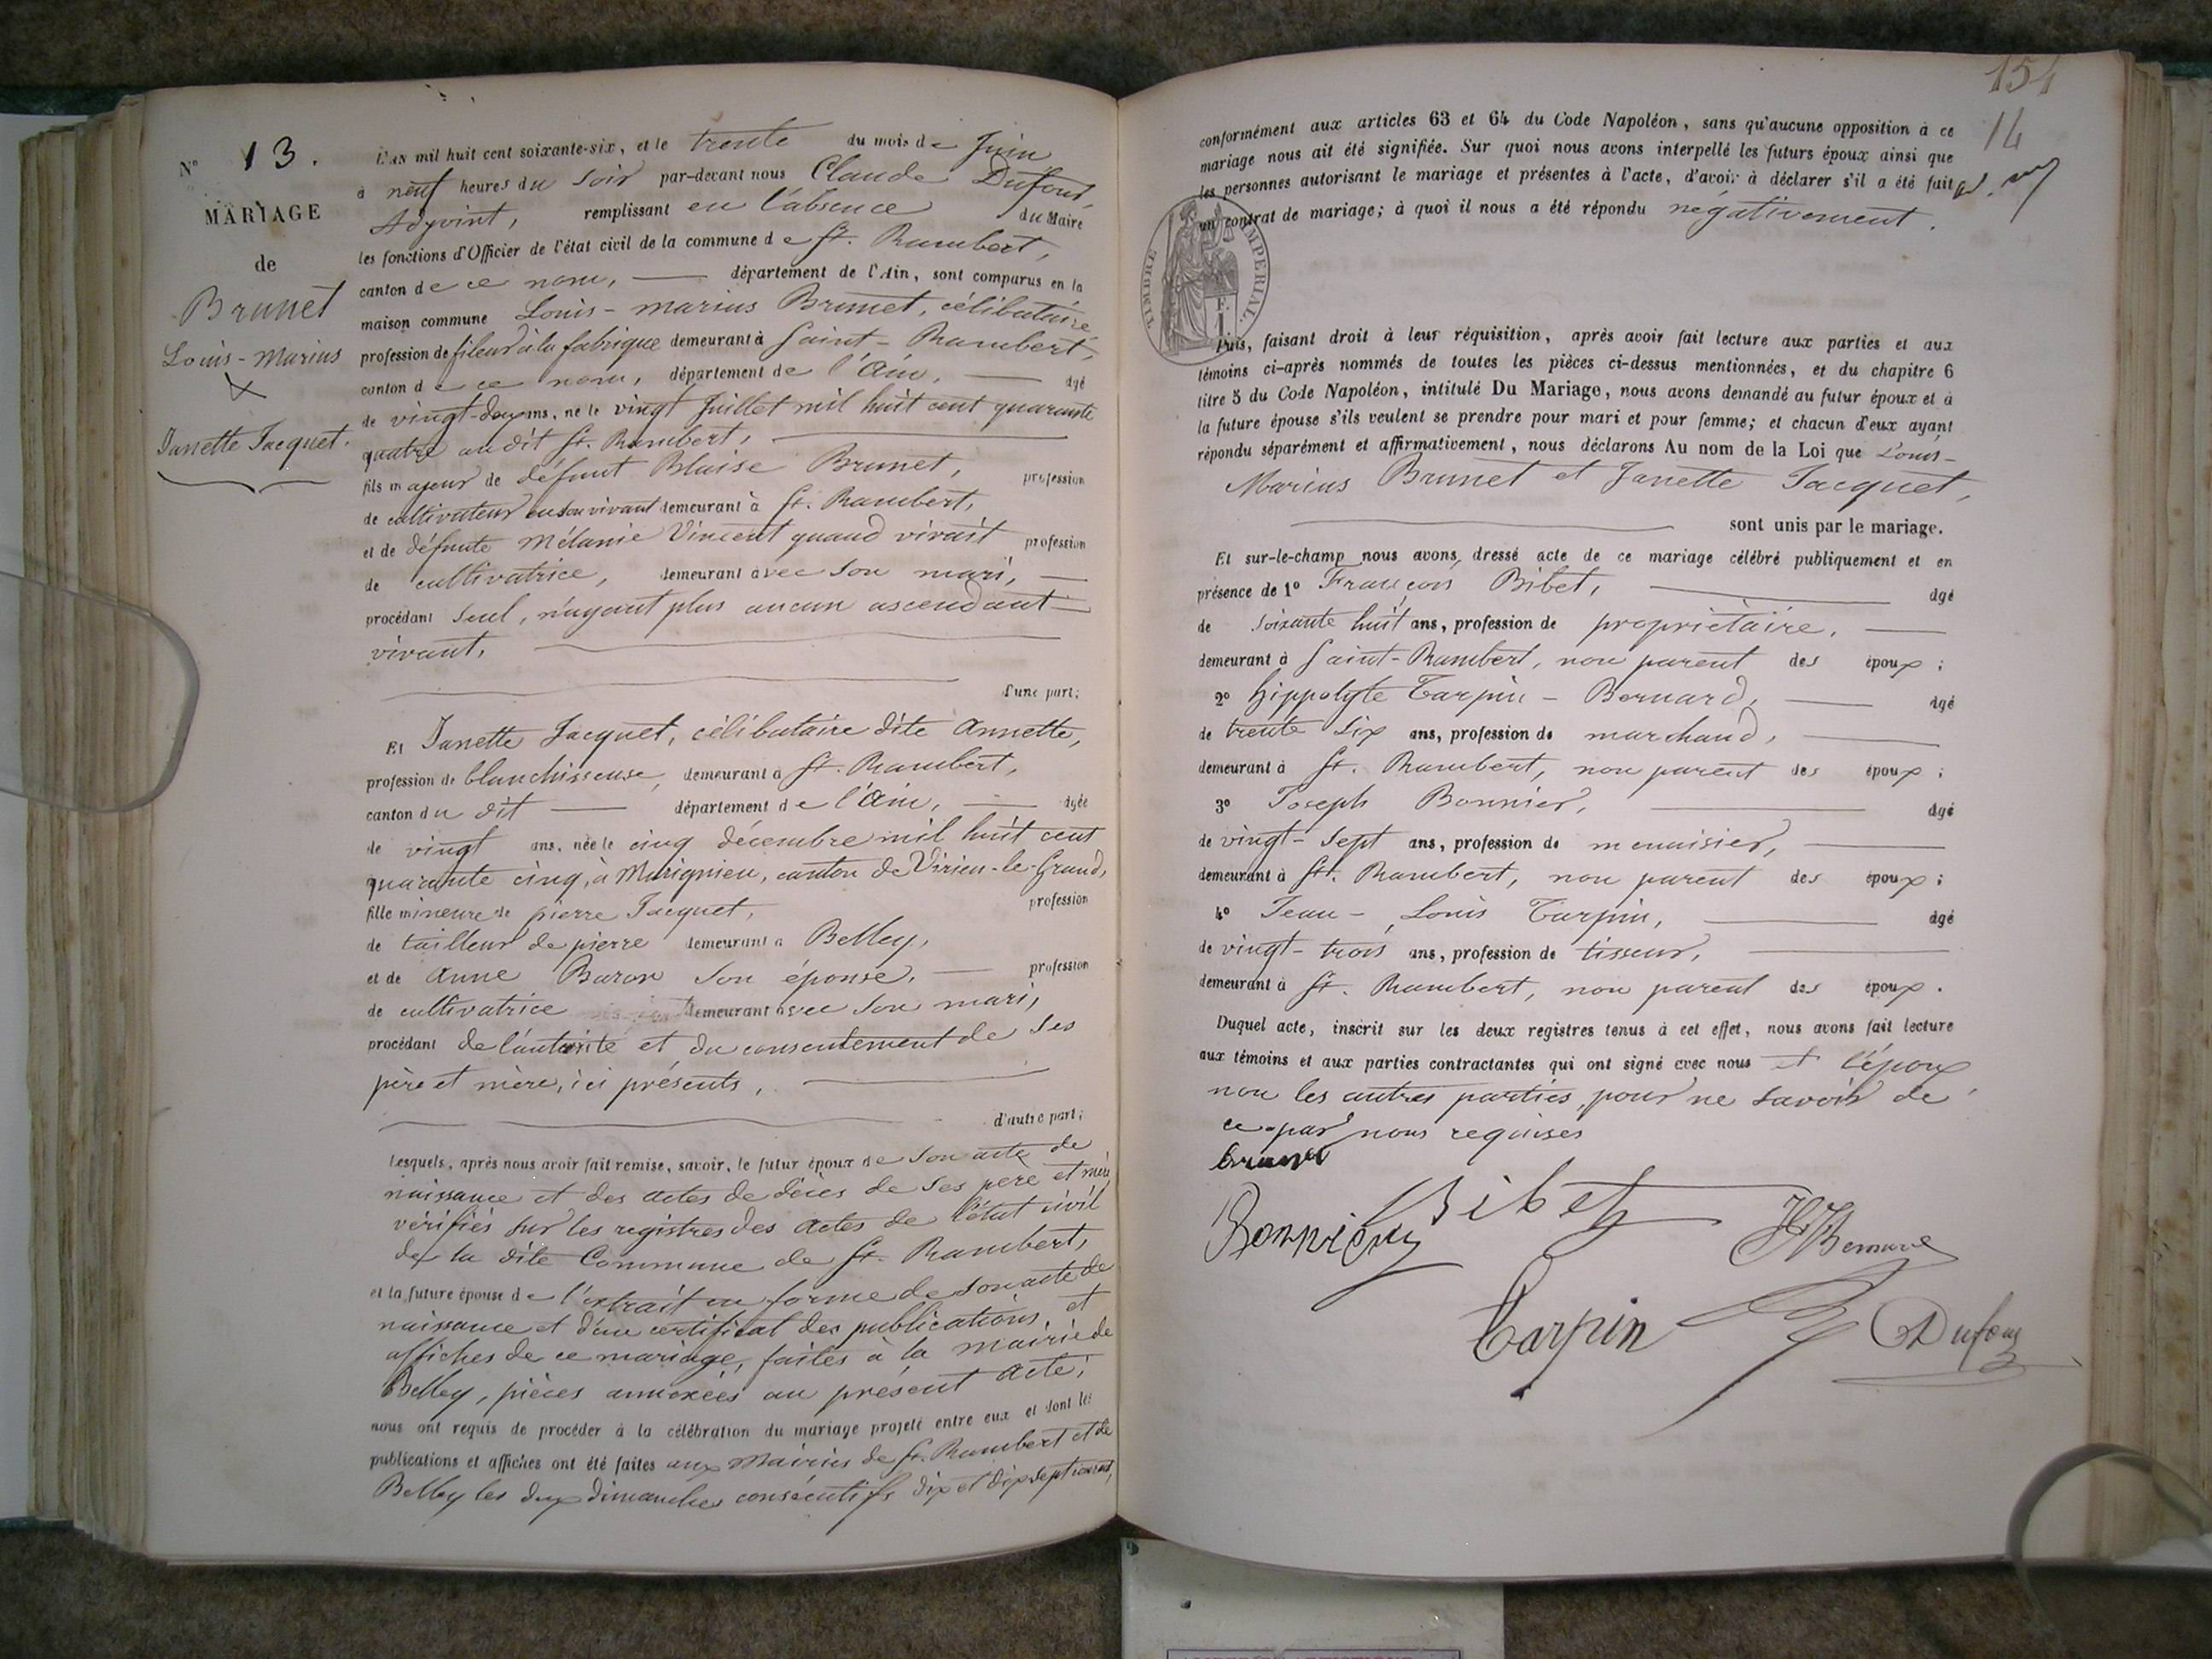 N° 13.
MARIAGE
de
Brunet
Louis-Marius
X
Janette Jacquet.
L'an mil huit cent soixante-six, et le trente du mois de Juin
à neuf heures du soir par-devant nous Claude Dufour,
Adjoint, remplissant en l'absence du Maire
les fonctions d'Officier de l'état civil de la commune de St. Rambert,
canton de ce nom, département de l'Ain, sont comparus en la
maison commune Louis-marius Brunet, célibataire
profession de fileur à la fabrique demeurant à Saint-Rambert,
canton de ce nom, département de l'Ain, âgé
de vingt-deux ans, né le vingt Juillet mil huit cent quarante
quatre au dit St. Rambert,
fils majeur de défunt Blaise Brunet, profession
de cultivateur en son vivant demeurant à St. Rambert,
et de défunte Mélanie Vincent quand vivait profession
de cultivatrice, demeurant avec son mari,
procédant seul, n'ayant plus aucun ascendant
vivant,
d'une part;
Et Janette Jacquet, célibataire dite Annette,
profession de blanchisseuse, demeurant à St. Rambert,
canton du dit département de l'Ain, âgée
de vingt ans, née le cinq décembre mil huit cent
quarante cinq, à Marignieu, canton de Virieu-le-Grand,
fille mineure de pierre Jacquet, profession
de tailleur de pierre demeurant à Belley,
et de Anne Baron son épouse, profession
de cultivatrice demeurant avec son mari,
procédant de l'autorité et du consentement de ses
père et mère, ici présents,
d'autre part;
Lesquels, après nous avoir fait remise, savoir, le futur époux de son acte de
naissance et des actes de décès de ses père et mère
vérifiés sur les registres des actes de l'état civil
de la dite Commune de St. Rambert,
et la future épouse de l'extrait en forme de son acte de
naissance et d'un certificat des publications et
affiches de ce mariage, faites à la mairie de
Belley, pièces annexées au présent acte;
nous ont requis de procéder à la célébration du mariage projeté entre eux et dont les
publications et affiches ont été faites aux Mairies de St. Rambert et de
Belley les deux dimanches consécutifs dix et dix sept courant,
154
14
conformément aux articles 63 et 64 du Code Napoléon, sans qu'aucune opposition à ce
mariage nous ait été signifiée. Sur quoi nous avons interpellé les futurs époux ainsi que
les personnes autorisant le mariage et présentes à l'acte, d'avoir à déclarer s'il a été fait
un contrat de mariage; à quoi il nous a été répondu négativement.
TIMBRE IMPERIAL
F.
1.
Puis, faisant droit à leur réquisition, après avoir fait lecture aux parties et aux
témoins ci-après nommés de toutes les pièces ci-dessus mentionnées, et du chapitre 6
titre 5 du Code Napoléon, intitulé Du Mariage, nous avons demandé au futur époux et à
la future épouse s'ils veulent se prendre pour mari et pour femme; et chacun d'eux ayant
répondu séparément et affirmativement, nous déclarons Au nom de la Loi que Louis-
Marius Brunet et Janette Jacquet,
sont unis par le mariage.
Et sur-le-champ nous avons dressé acte de ce mariage célébré publiquement et en
présence de 1° François Bibet, âgé
de soixante huit ans, profession de propriétaire,
demeurant à Saint-Rambert, non parent des époux;
2° Hippolyte Tarpin-Bernard, âgé
de trente six ans, profession de marchand,
demeurant à St. Rambert, non parent des époux;
3° Joseph Bonnier, âgé
de vingt-sept ans, profession de menuisier,
demeurant à St. Rambert, non parent des époux;
4° Jean-Louis Tarpin, âgé
de vingt-trois ans, profession de tisseur,
demeurant à St. Rambert, non parent des époux.
Duquel acte, inscrit sur les deux registres tenus à cet effet, nous avons fait lecture
aux témoins et aux parties contractantes qui ont signé avec nous et l'époux
non les autres parties, pour ne savoir de
ce par nous requises
brunet
Bibet
Bonnier
H Bernard
Tarpin
Dufour